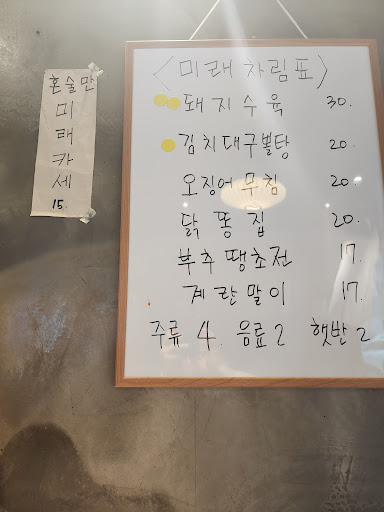 혼술만
미
태
카
세
15.
<미래 차림표>
돼지수육 30.
김치대구뽈탕 20.
오징어무침 20.
닭똥집 20.
부추땡초전 17.
계란말이 17.
주류 4. 음료 2 햇반 2